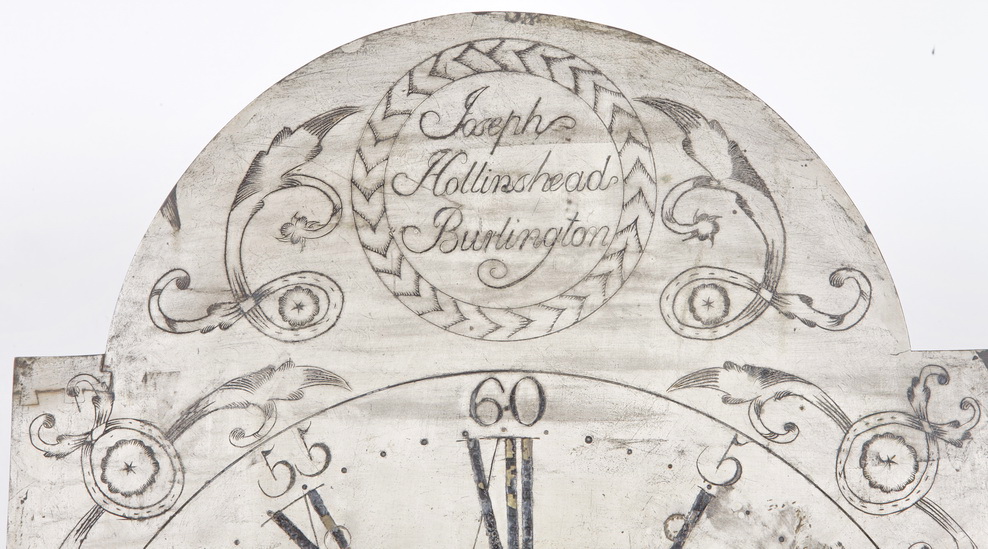 Joseph
Hollinshead
Burlington
60
55 5
XI XII I